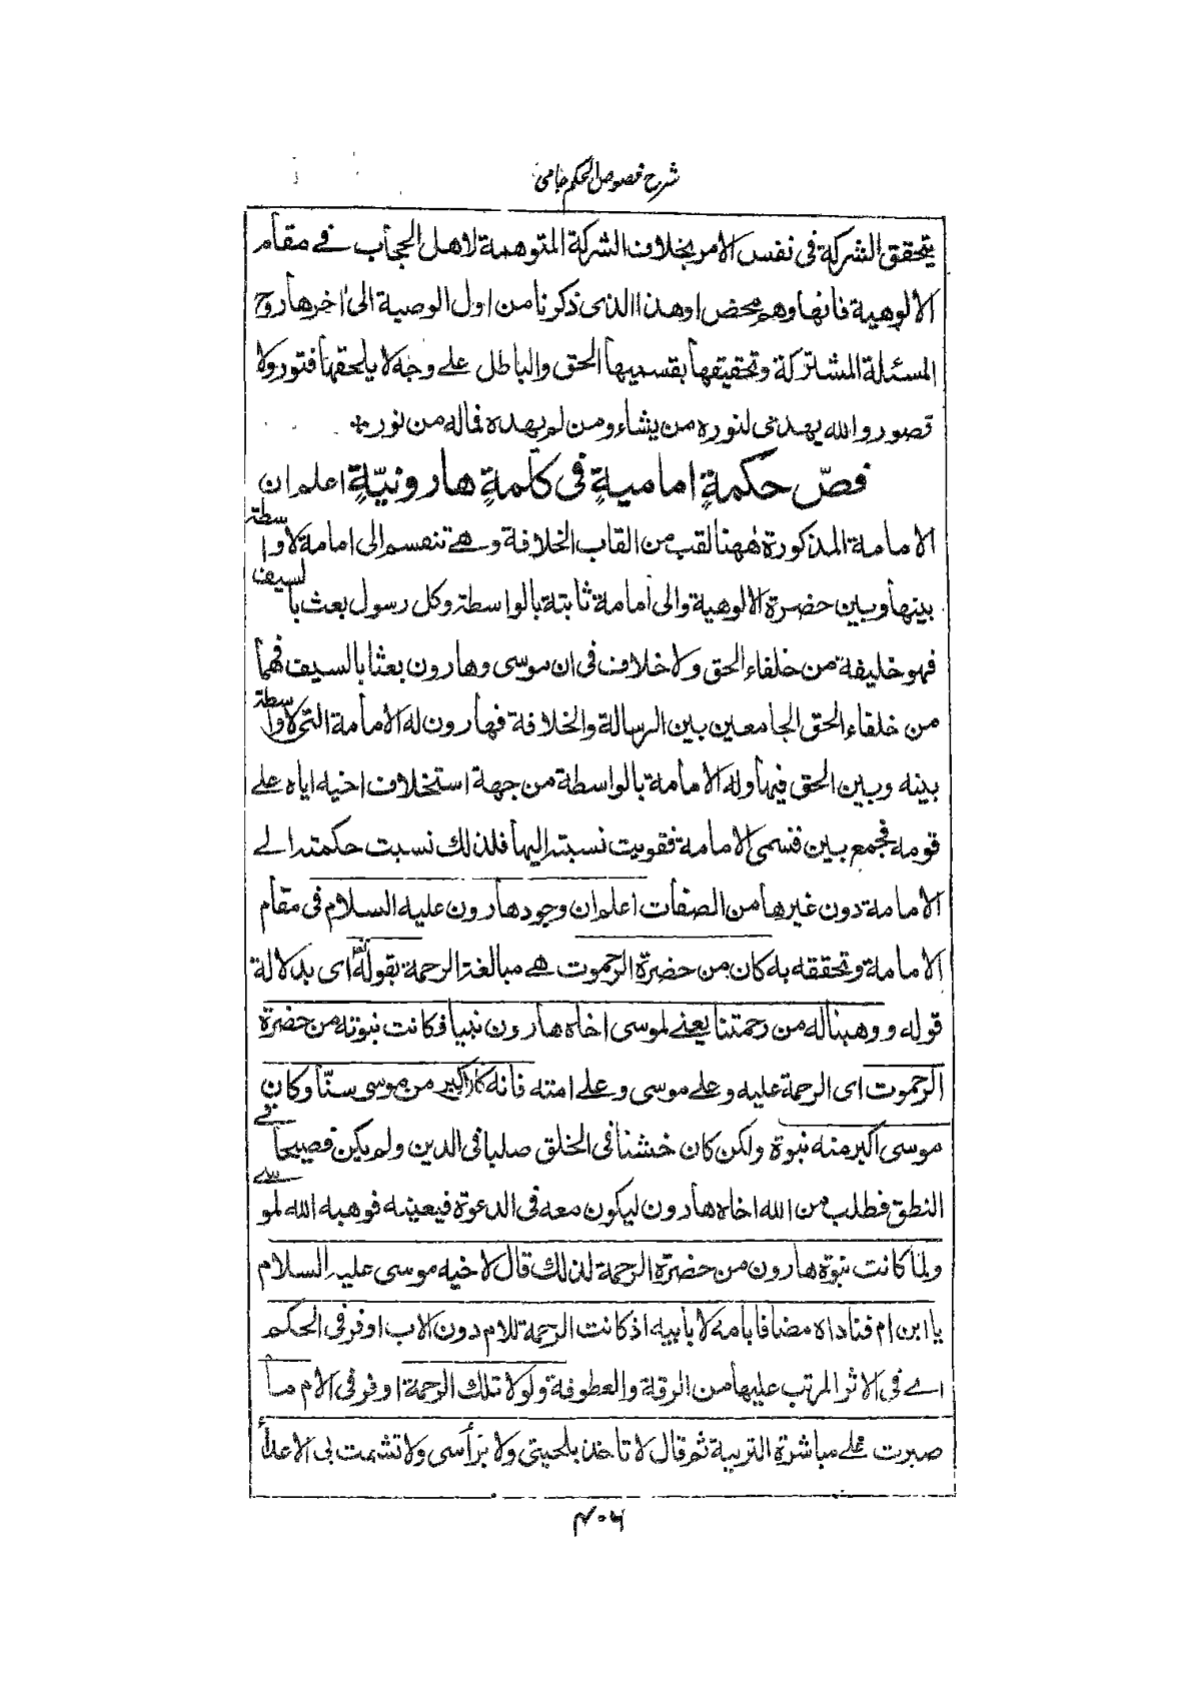 شرح فصوص الحكم جامى
يتحقق الشركة فى نفس الامر بخلاف الشركة المتوهمة لاهل الحجاب فے مقام
الالوهية فانها وهم محض او هذا الذى ذكرنا من اول الوصية الى اٰخرها روح
المسئلة المشتركة وتحقيقها بقسميها الحق والباطل علے وجه لا يلحقها فتور ولا
قصور والله يهدى لنوره من يشاء ومن لم يهده فماله من نور
فصّ حكمةٍ اماميةٍ فى كلمةٍ هارونيّةٍ اعلم ان
الامامة المذكورة هٰهنا لقب من القاب الخلافة وهے تنقسم الى امامة لا واسطة
بينها وبين حضرة الالوهية والى امامة ثابتة بالواسطة وكل رسول بعث بالسيف
فهو خليفة من خلفاء الحق ولا خلاف فى ان موسى وهارون بعثا بالسيف فهما
من خلفاء الحق الجامعين بين الرسالة والخلافة فهارون له الامامة التى لا واسطة
بينه وبين الحق فيها وله الامامة بالواسطة من جهة استخلاف اخيه اياه علے
قومه فجمع بين قسمى الامامة فقويت نسبته اليها فلذلك نسبت حكمته الے
الامامة دون غيرها من الصفات اعلم ان وجود هارون عليه السلام فى مقام
الامامة وتحققه به كان من حضرة الرحموت هے مبالغة الرحمة بقوله اى بدلالة
قوله ووهبنا له من رحمتنا يعنے لموسى اخاه هارون نبيا فكانت نبوته من حضرة
الرحموت اى الرحمة عليه وعلے موسى وعلے امته فانه كان اكبر من موسى سنّا وكان
موسى اكبر منه نبوة ولكن كان خشنا فى الخلق صلبا فى الدين ولم يكن فصيحا فے
النطق فطلب من الله اخاه هارون ليكون معه فى الدعوة فيعينه فوهبه الله لموسے
ولما كانت نبوة هارون من حضرة الرحمة لذلك قال لاخيه موسى عليه السلام
يا ابن ام فناداه مضافا بامه لا بابيه اذ كانت الرحمة للام دون الاب اوفر فى الحكم
اے فى الاثر المرتب عليها من الرقة والعطوفة ولولا تلك الرحمة اوفر فى الام ما
صبرت علے مباشرة التربية ثم قال لا تاخذ بلحيتى ولا برأسى ولا تشمت بى الاعداء